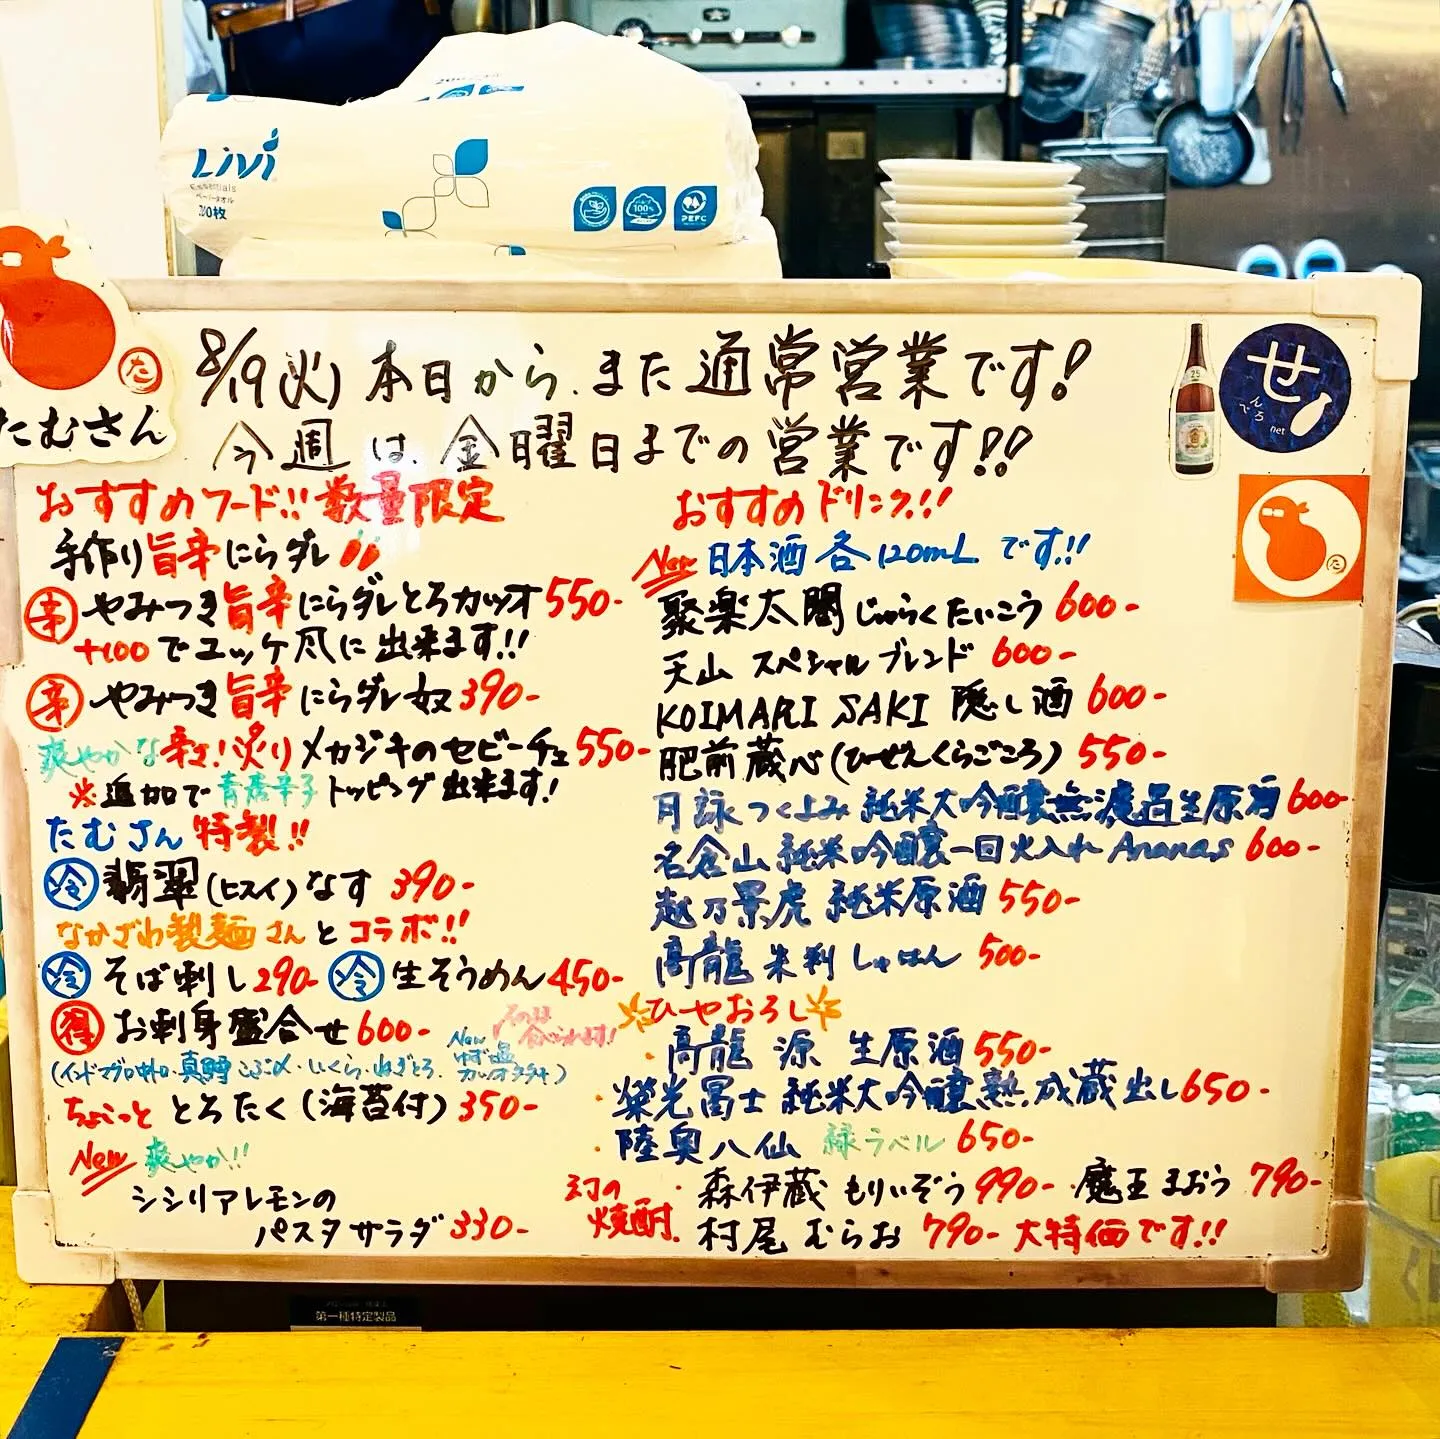 Livi
Essentials
ペーパータオル
200枚
100%
PEFC
た
たむさん
せ
んべろ
net
25
8/19(火) 本日から、また通常営業です!
今週は、金曜日までの営業です!!
おすすめフード!! 数量限定
手作り旨辛にらダレ
辛 やみつき旨辛にらダレとろカツオ 550-
+100でユッケ風に出来ます!!
辛 やみつき旨辛にらダレ奴 390-
爽やかな辛さ!炙りメカジキのセビーチェ 550-
※追加で青唐辛子トッピング出来ます!
たむさん特製!!
冷 翡翠(ヒスイ)なす 390-
なかざわ製麺さんとコラボ!!
冷 そば刺し 290- 冷 生そうめん 450-
得 お刺身盛合せ 600-
そのまま食べられます!
(インドマグロ中トロ・真鯛こぶ〆・いくら・ねぎとろ・New ゆず塩カツオタタキ)
ちょこっと とろたく(海苔付) 350-
New 爽やか!!
シシリアレモンの
パスタサラダ 330-
おすすめドリンク!!
New 日本酒 各120mL です!!
聚楽太閤 じゅらくたいこう 600-
天山 スペシャルブレンド 600-
KOIMARI SAKI 隠し酒 600-
肥前蔵心(ひぜんくらごころ) 550-
月詠 つくよみ 純米大吟醸無濾過生原酒 600-
名倉山 純米吟醸一回火入れ Ananas 600-
越乃景虎 純米原酒 550-
高龍 朱判 しゅはん 500-
ひやおろし
・高龍 源 生原酒 550-
・榮光冨士 純米大吟醸熟成蔵出し 650-
・陸奥八仙 緑ラベル 650-
幻の焼酎
・森伊蔵 もりいぞう 990- ・魔王 まおう 790-
・村尾 むらお 790- 大特価です!!
第一種特定製品